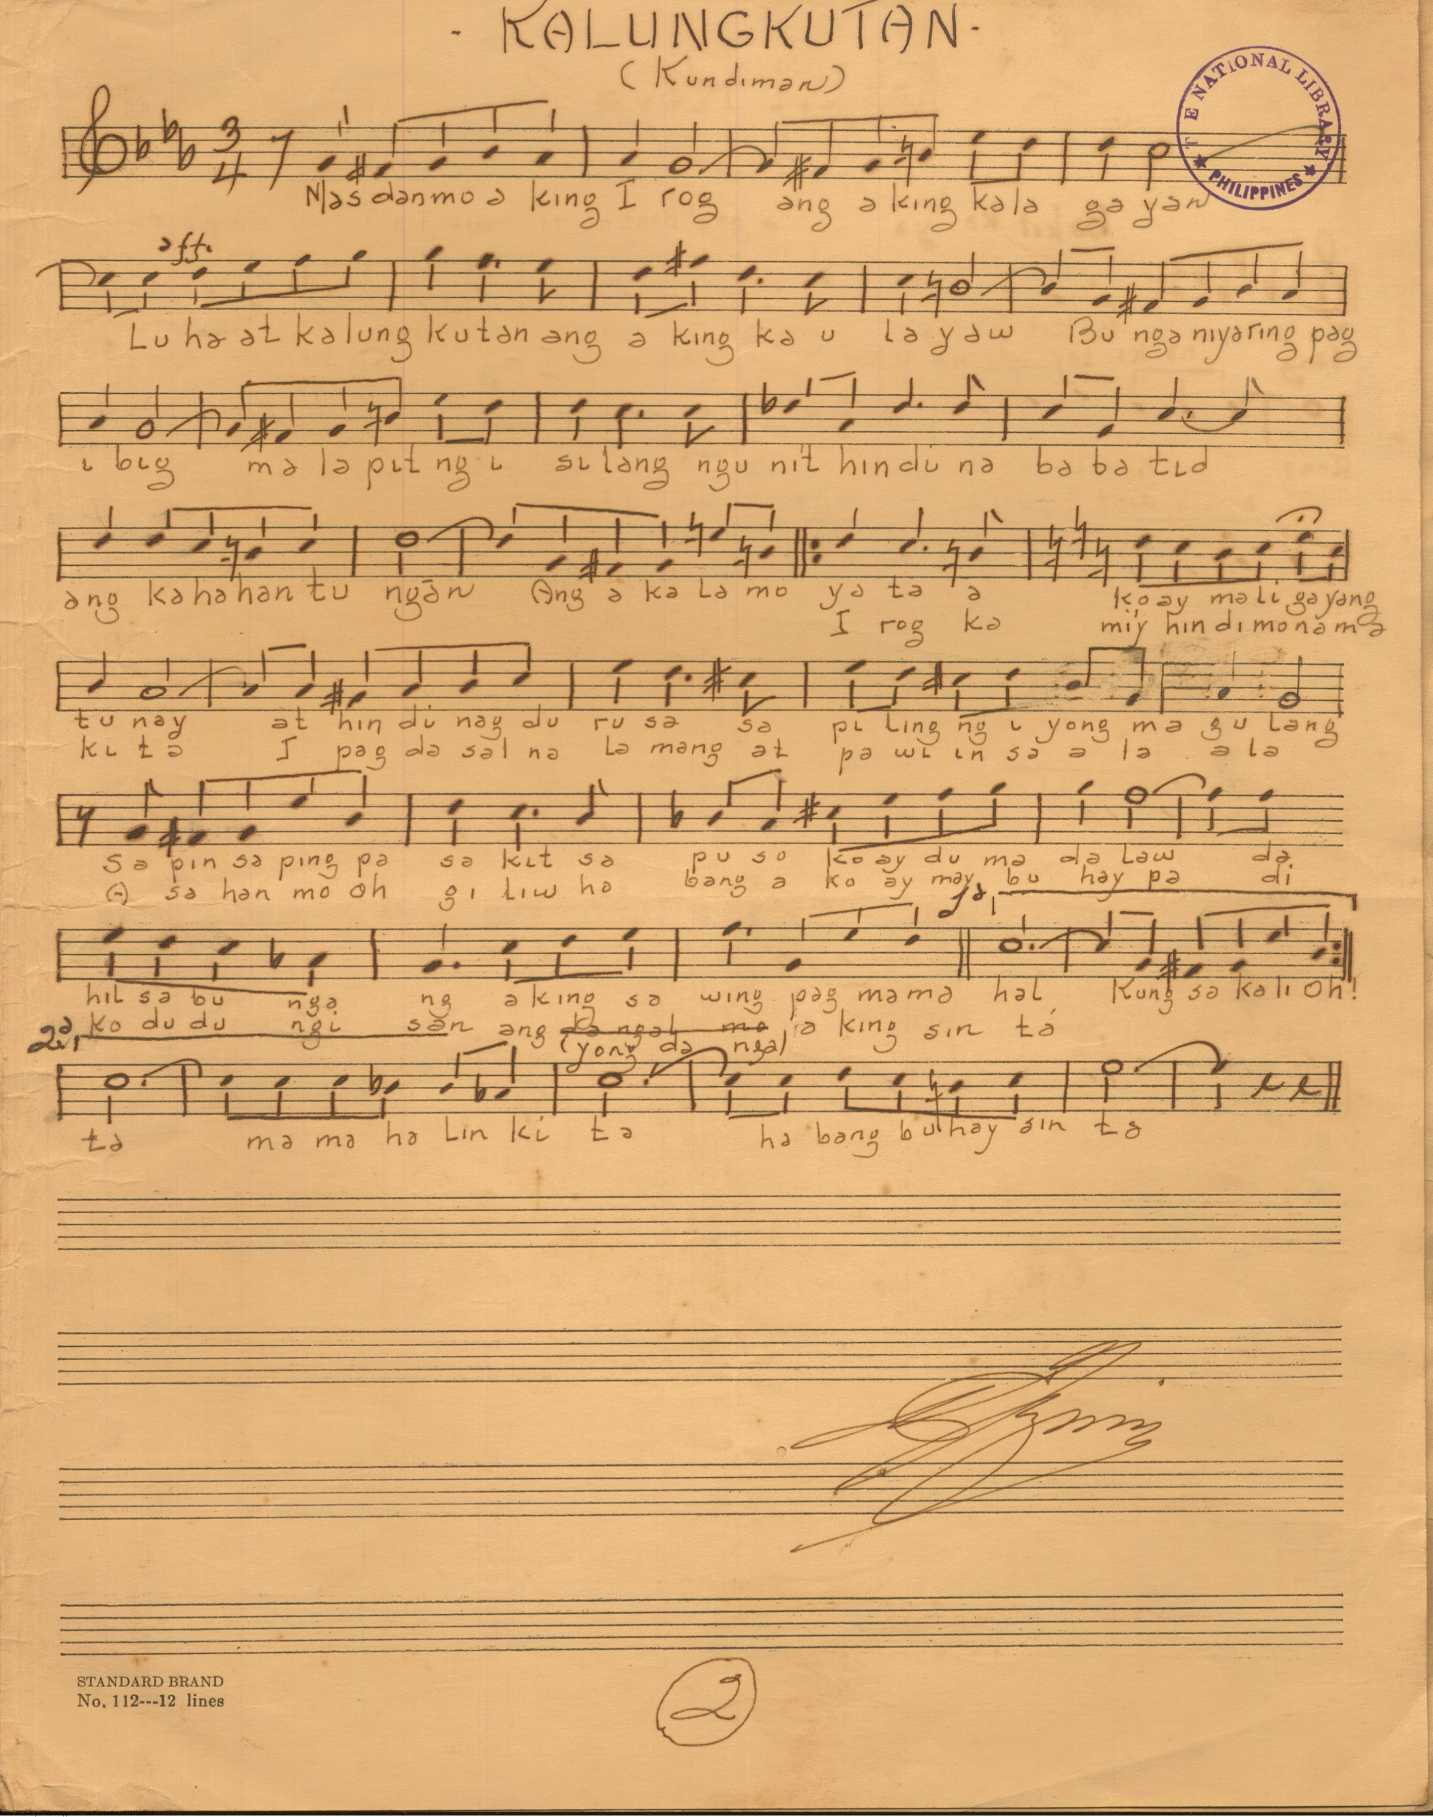 - KALUNGKUTAN -
(Kundiman)
THE NATIONAL LIBRARY
PHILIPPINES
3
4
Mas dan mo a king I rog ang a king ka la ga yan
a ft.
Lu ha at ka lung ku tan ang a king ka u la yaw Bu nga niya ring pag
i big ma la pit ng i si lang ngu ni't hin di na ba ba tid
ang ka ha han tu ngan Ang a ka la mo ya ta a ko ay ma li ga yang
I rog ka mi'y hin di mo na ma
tu nay at hin di nag du ru sa sa pi ling ng i yong ma gu lang
ki ta I pag da sal na la mang at pa wi in sa a la a la
Sa pin sa ping pa sa kit sa pu so ko ay du ma da law da
A sa han mo Oh gi liw ha bang a ko ay may bu hay pa di
1a,
hil sa bu nga ng a king sa wing pag ma ma hal Kung sa ka li Oh!
ko du du ngi san ang da ngal mo a king sin tá
2a, (yong da ngal)
ta ma ma ha lin ki ta ha bang bu hay sin ta
STANDARD BRAND
No. 112---12 lines
2